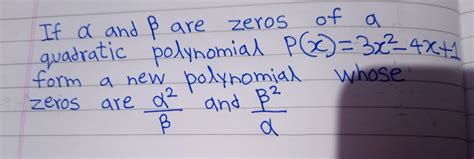 If α and β are zeros of a
quadratic polynomial P(x)=3x²-4x+1
form a new polynomial whose
zeros are α²/β and β²/α